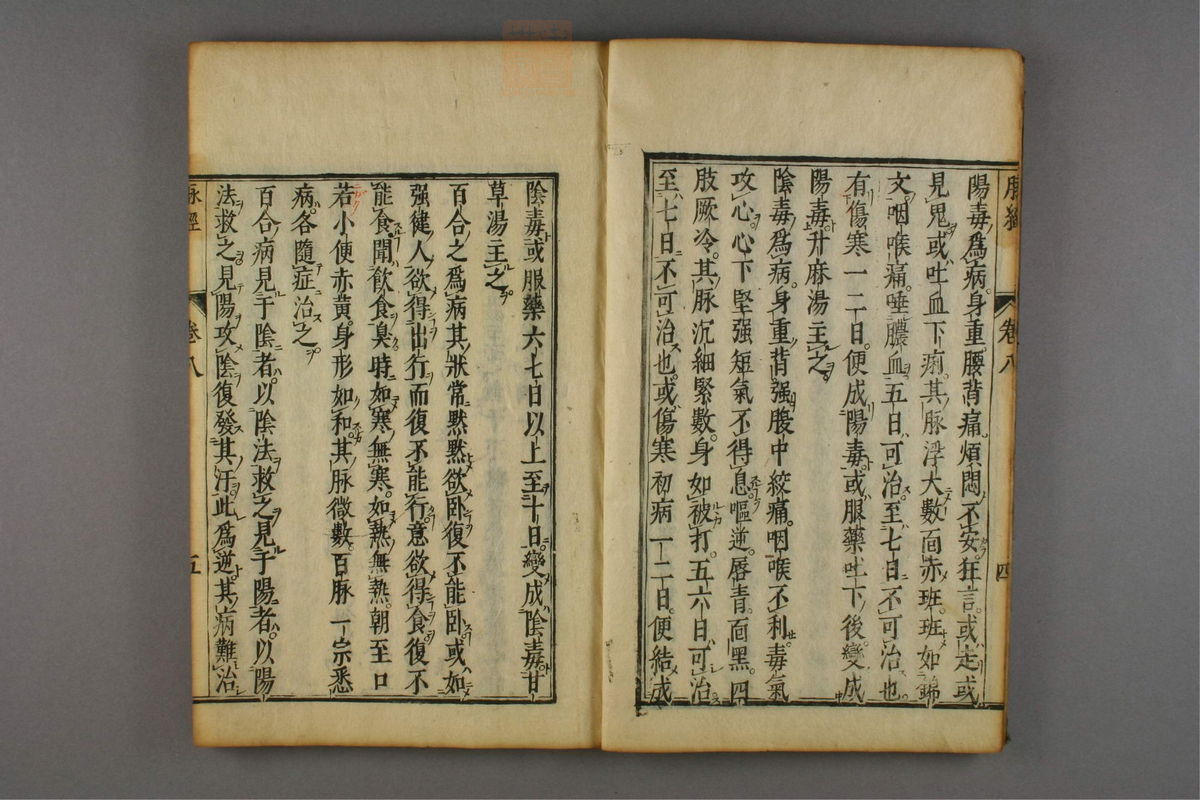 脉經
卷八
四
陽毒爲病身重腰背痛煩悶不安狂言或走或
見鬼或吐血下痢其脉浮大數面赤班班如錦
文咽喉痛唾膿血五日可治至七日不可治也
有傷寒一二日便成陽毒或服藥吐下後變成
陽毒升麻湯主之
陰毒爲病身重背强腹中絞痛咽喉不利毒氣
攻心心下堅强短氣不得息嘔逆唇青面黑四
肢厥冷其脉沉細緊數身如被打五六日可治
至七日不可治也或傷寒初病一二日便結成
陰毒或服藥六七日以上至十日變成陰毒甘
草湯主之
百合之爲病其狀常默默欲卧復不能卧或如
强健人欲得出行而復不能行意欲得食復不
能食聞飲食臭時如寒無寒如熱無熱朝至口
若小便赤黄身形如和其脉微數百脉一宗悉
病各隨症治之
百合病見于陰者以陰法救之見于陽者以陽
法救之見陽攻陰復發其汗此爲逆其病難治
脉經
卷八
五